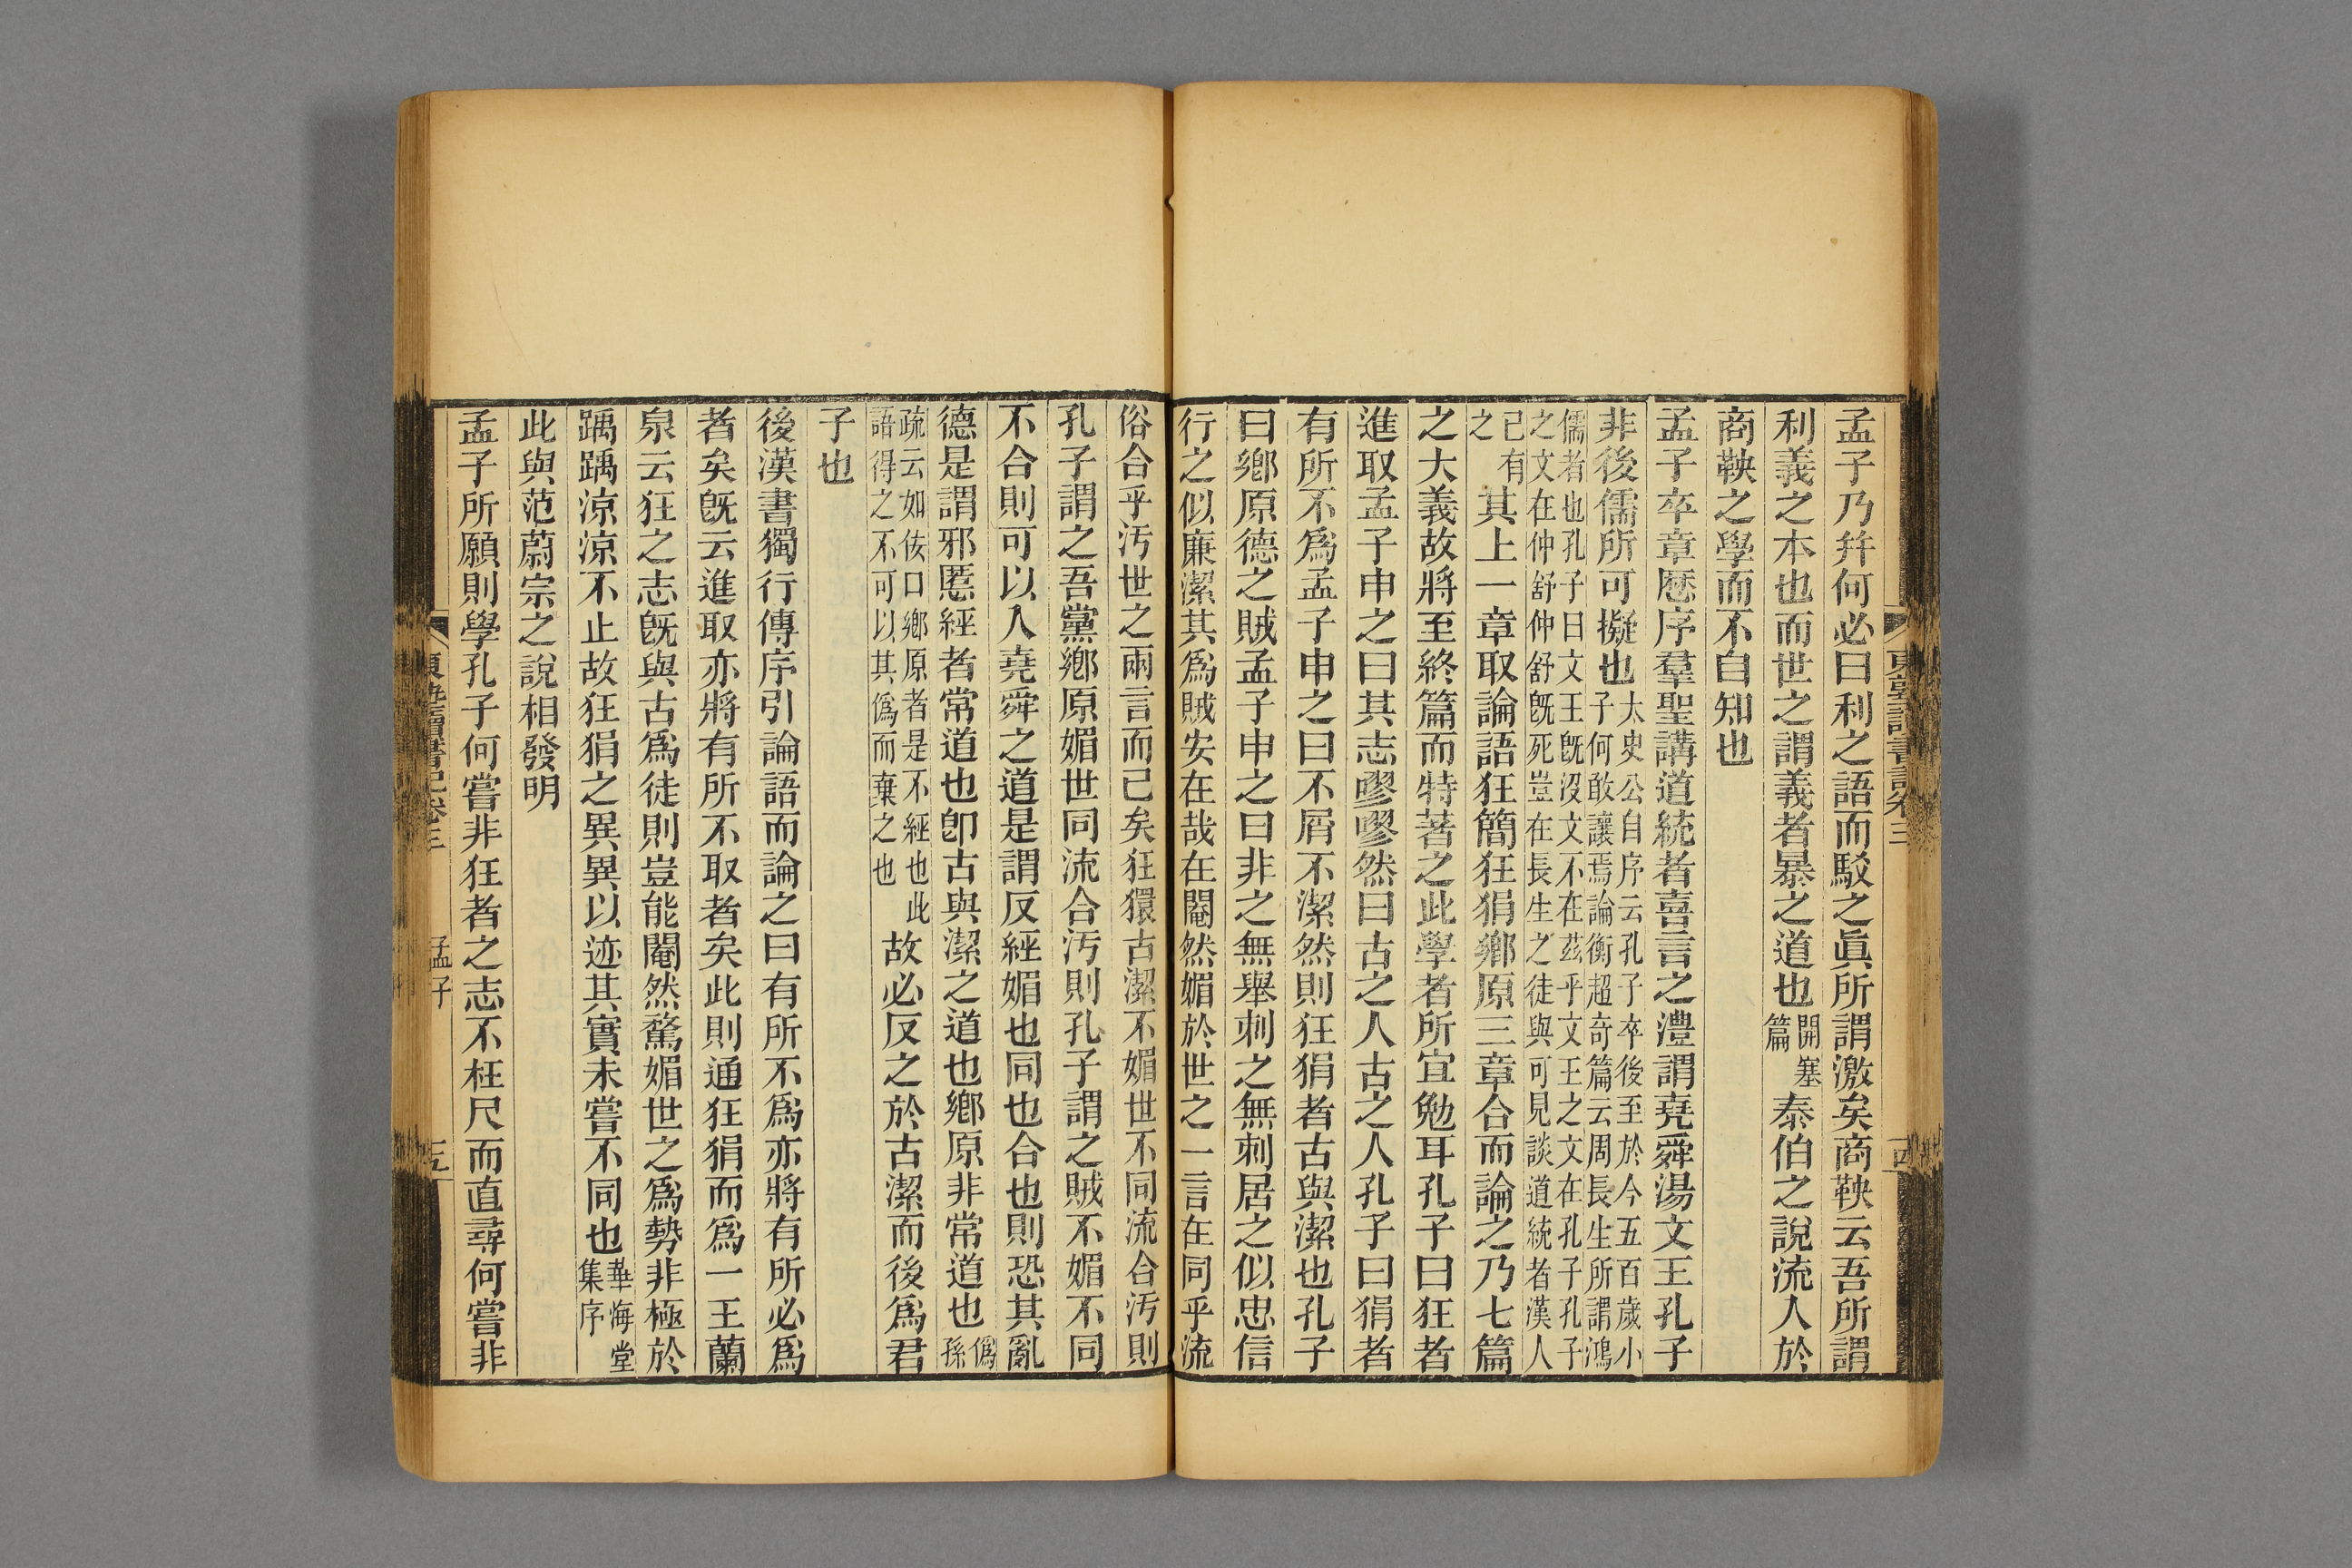 東塾讀書記卷三
四
孟子乃幷何必曰利之語而駁之眞所謂激矣商鞅云吾所謂
利義之本也而世之謂義者暴之道也開塞篇泰伯之說流入於
商鞅之學而不自知也
孟子卒章厯序羣聖講道統者喜言之澧謂堯舜湯文王孔子
非後儒所可擬也太史公自序云孔子卒後至於今五百歲小
子何敢讓焉論衡超奇篇云周長生所謂鴻
儒者也孔子曰文王旣沒文不在茲乎文王之文在孔子孔子
之文在仲舒仲舒旣死豈在長生之徒與可見談道統者漢人
已有之其上一章取論語狂簡狂狷鄉原三章合而論之乃七篇
之大義故將至終篇而特著之此學者所宜勉耳孔子曰狂者
進取孟子申之曰其志嘐嘐然曰古之人古之人孔子曰狷者
有所不爲孟子申之曰不屑不潔然則狂狷者古與潔也孔子
曰鄉原德之賊孟子申之曰非之無舉刺之無刺居之似忠信
行之似廉潔其爲賊安在哉在閹然媚於世之一言在同乎流
俗合乎汚世之兩言而已矣狂獧古潔不媚世不同流合汚則
孔子謂之吾黨鄉原媚世同流合汚則孔子謂之賊不媚不同
不合則可以入堯舜之道是謂反經媚也同也合也則恐其亂
德是謂邪慝經者常道也卽古與潔之道也鄉原非常道也僞孫
疏云如佞口鄉原者是不經也此
語得之不可以其僞而棄之也
故必反之於古潔而後爲君
子也
後漢書獨行傳序引論語而論之曰有所不爲亦將有所必爲
者矣旣云進取亦將有所不取者矣此則通狂狷而爲一王蘭
泉云狂之志旣與古爲徒則豈能閹然騖媚世之爲勢非極於
踽踽涼涼不止故狂狷之異異以迹其實未嘗不同也華海堂集序
此與范蔚宗之說相發明
孟子所願則學孔子何嘗非狂者之志不枉尺而直尋何嘗非
東塾讀書記卷三
孟子
五